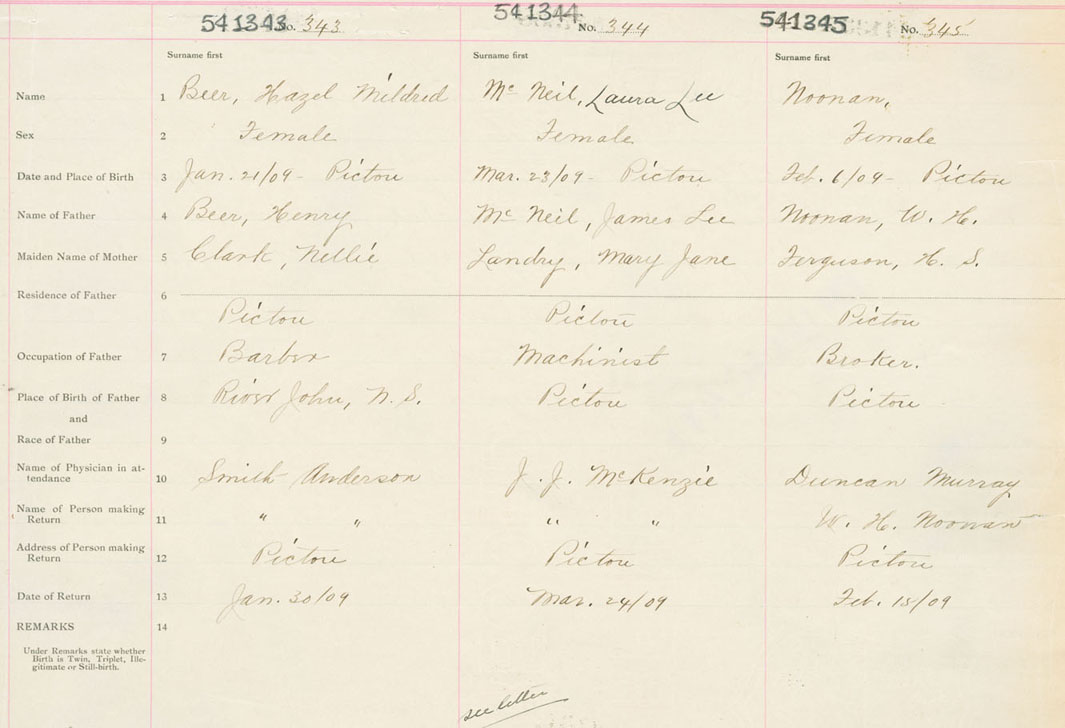 541343 No. 343 541344 No. 344 541345 No. 345
Surname first Surname first Surname first
Name 1 Beer, Hazel Mildred Mc Neil, Laura Lee Noonan,
Sex 2 Female Female Female
Date and Place of Birth 3 Jan. 21/09 - Pictou Mar. 23/09 - Pictou Feb. 6/09 - Pictou
Name of Father 4 Beer, Henry Mc Neil, James Lee Noonan, W. H.
Maiden Name of Mother 5 Clark, Nellie Landry, Mary Jane Ferguson, H. S.
Residence of Father 6
Pictou Pictou Pictou
Occupation of Father 7 Barber Machinist Broker.
Place of Birth of Father 8 River John, N. S. Pictou Pictou
and
Race of Father 9
Name of Physician in at-
tendance 10 Smith Anderson J. J. McKenzie Duncan Murray
Name of Person making
Return 11 " " " " W. H. Noonan
Address of Person making
Return 12 Pictou Pictou Pictou
Date of Return 13 Jan. 30/09 Mar. 24/09 Feb. 15/09
REMARKS 14
Under Remarks state whether
Birth is Twin, Triplet, Ille-
gitimate or Still-birth.
see letter